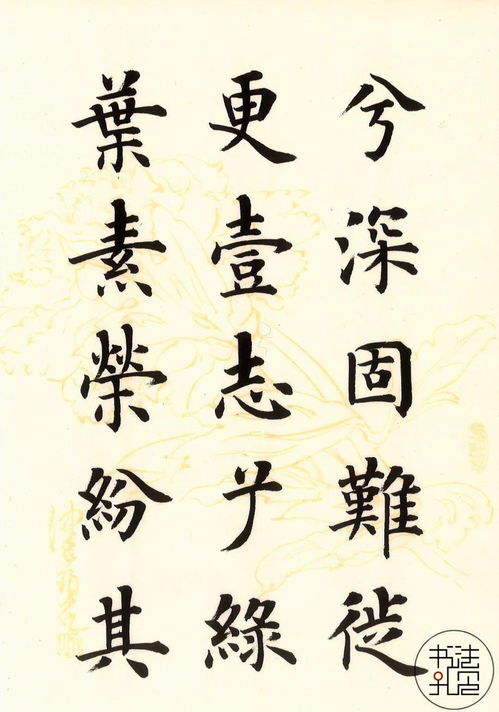 兮深固難徙
更壹志兮綠
葉素榮紛其
书法